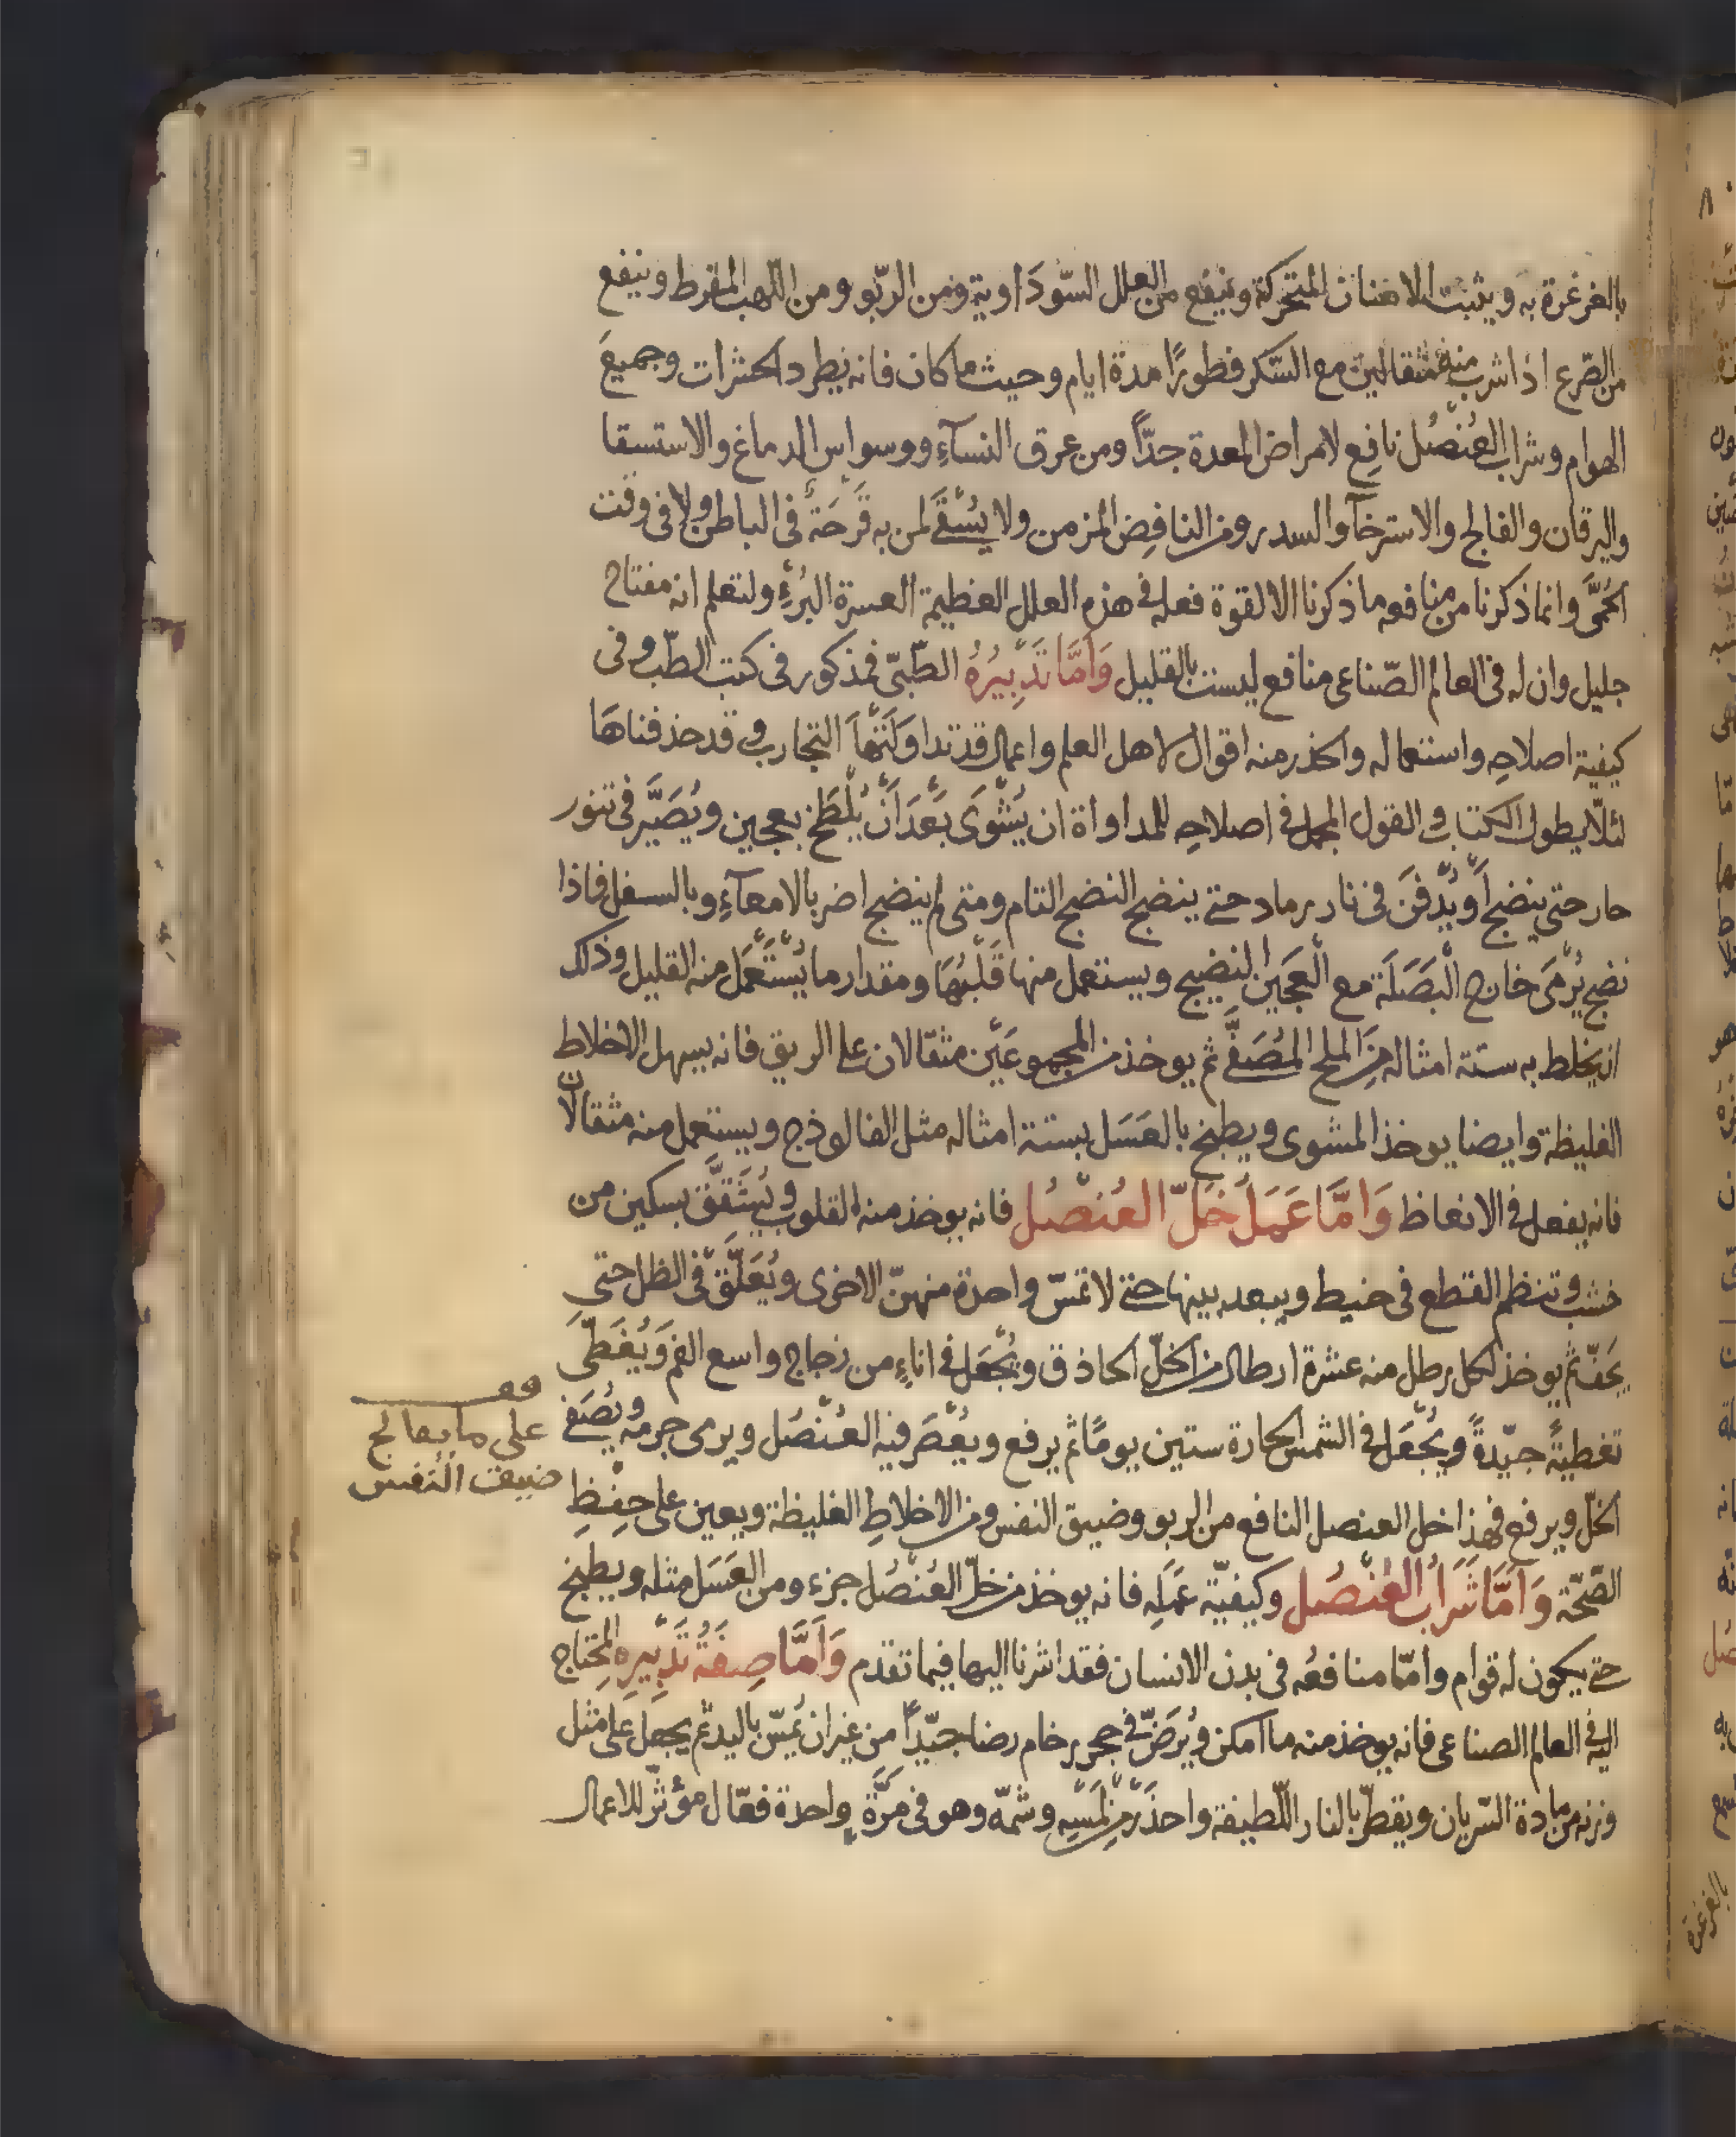 بالغرغرة به ويثبت الاسنان المتحركة وينفع من العلل السّودَاوية ومن الربّو ومن اللهب المفرط وينفع
من الصّرع اذا شرب منه مثقالين مع السّكر فطورًا مدة ايام وحيث ما كان فانه يطرد الحشرات وجميعَ
الهوام وشراب العُنْصُل نافِع لامراض المعدة جدّاً ومن عرق النسآءِ ووسواس الدماغ والاستسقا
واليرقان والفالج والاسترخآ والسدر ومن النافِض المزمن ولا يُسْقَى لمن به قَرْحَةٌ في الباطن ولا في وقت
الحُمَّى وانما ذكرنا من منافعه ما ذكرنا الا لقوة فعله في هذه العلل العظيمة العسرة البُرْءِ ولتعلم انه مفتاح
جليل وان له في العالم الصّناعى منافع ليست بالقليل وَامَّا تَدْبِيرُهُ الطّبىّ فمذكور في كتب الطّب وفى
كيفية اصلاحِه واستعماله والحذر منه اقوال لاهل العلم واعمال قد تداوَلَتْهَا التجارب وقد حذفناهَا
لئلّا يطول الكتاب والقول المجمل في اصلاحِه للمداواة ان يُشْوَى بَعْدَ اَنْ يُلْطَخ بعجين ويُصَيَّر في تنور
حار حتى ينضج اَوْ يُدْفَنَ في نار رماد حتى ينضج النضج التام ومتى لم ينضج اضر بالامعآءِ وبالسفل فاذا
نضج يُرْمَى خارج الْبَصَلَة مع الْعَجِين النضيج ويستعمل منها قَلْبُهَا ومقدار ما يُسْتَعْمَل منه القليل وذلك
ان يخلط به ستة امثاله مِنَ الملح المُصَفَّى ثم يوخذ من المجموعَيْن مثقالان على الريق فانه يسهل الاخلاط
الغليظة وايضا يوخذ المشوى ويطبخ بالعَسَل بستة امثاله مثل الفالوذج ويستعمل منه مثقالان
فانه يفعل في الانعاظ وَامَّا عَمَلُ خَلّ العُنْصُل فانه يوخذ منه القلوب ويُشَقَّق بسكين من
خشب وتنظم القطع في خيط ويبعد بينها حتى لا تمسّ واحدة منهنّ الاخرى ويُعَلَّق في الظل حتى
يَجَفّ ثم يوخذ لكل رطل منه عشرة ارطال من الخلّ الحاذق ويُجْعَل في اناءٍ من زجاج واسع الفم وَيُغَطّى
تغطيةً جيّدةً ويُجْعَل في الشمس الحارة ستين يومًا ثم يرفع ويُعْصَر فيه العُنْصُل ويرمى جرمه ويُصَفى
الخلّ ويرفع فهذا خل العنصل النافع من الربو وضيق النفس ومن الاخلاطِ الغليظة ويعين على حِفْظِ
الصّحّة وَاَمَّا شَرَابُ العُنْصُل وكيفيّة عَمَلِهِ فانه يوخذ من خلّ العُنْصُل جزء ومن العَسَل مثله ويطبخ
حتى يكون له قوام وامّا منافعُه في بدن الانسان فقد اشرنا اليها فيما تقدم وَاَمَّا صِفَةُ تَدْبِيرِهِ المحتاج
اليه في العالم الصناعى فانه يوخذ منه ما امكن ويُرَضّ في حجر رخام رضا جيّداً مِن غير ان يُمَسّ باليد ثم يجعل على مثل
وزنه من مادة السّريان ويقطّر بالنار اللّطيفة واحذَرْ مِنْ لَمْسِهِ وشمّه وهو في مَرَّةٍ واحدة فعّال مؤثّر للاعمال
قف
على ما يعالج
ضيقت النفس
بالغرغرة